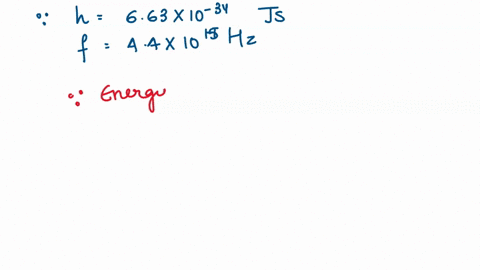 ∵ h = 6.63 × 10⁻³⁴ Js
f = 4.4 × 10¹⁵ Hz
∵ Energy